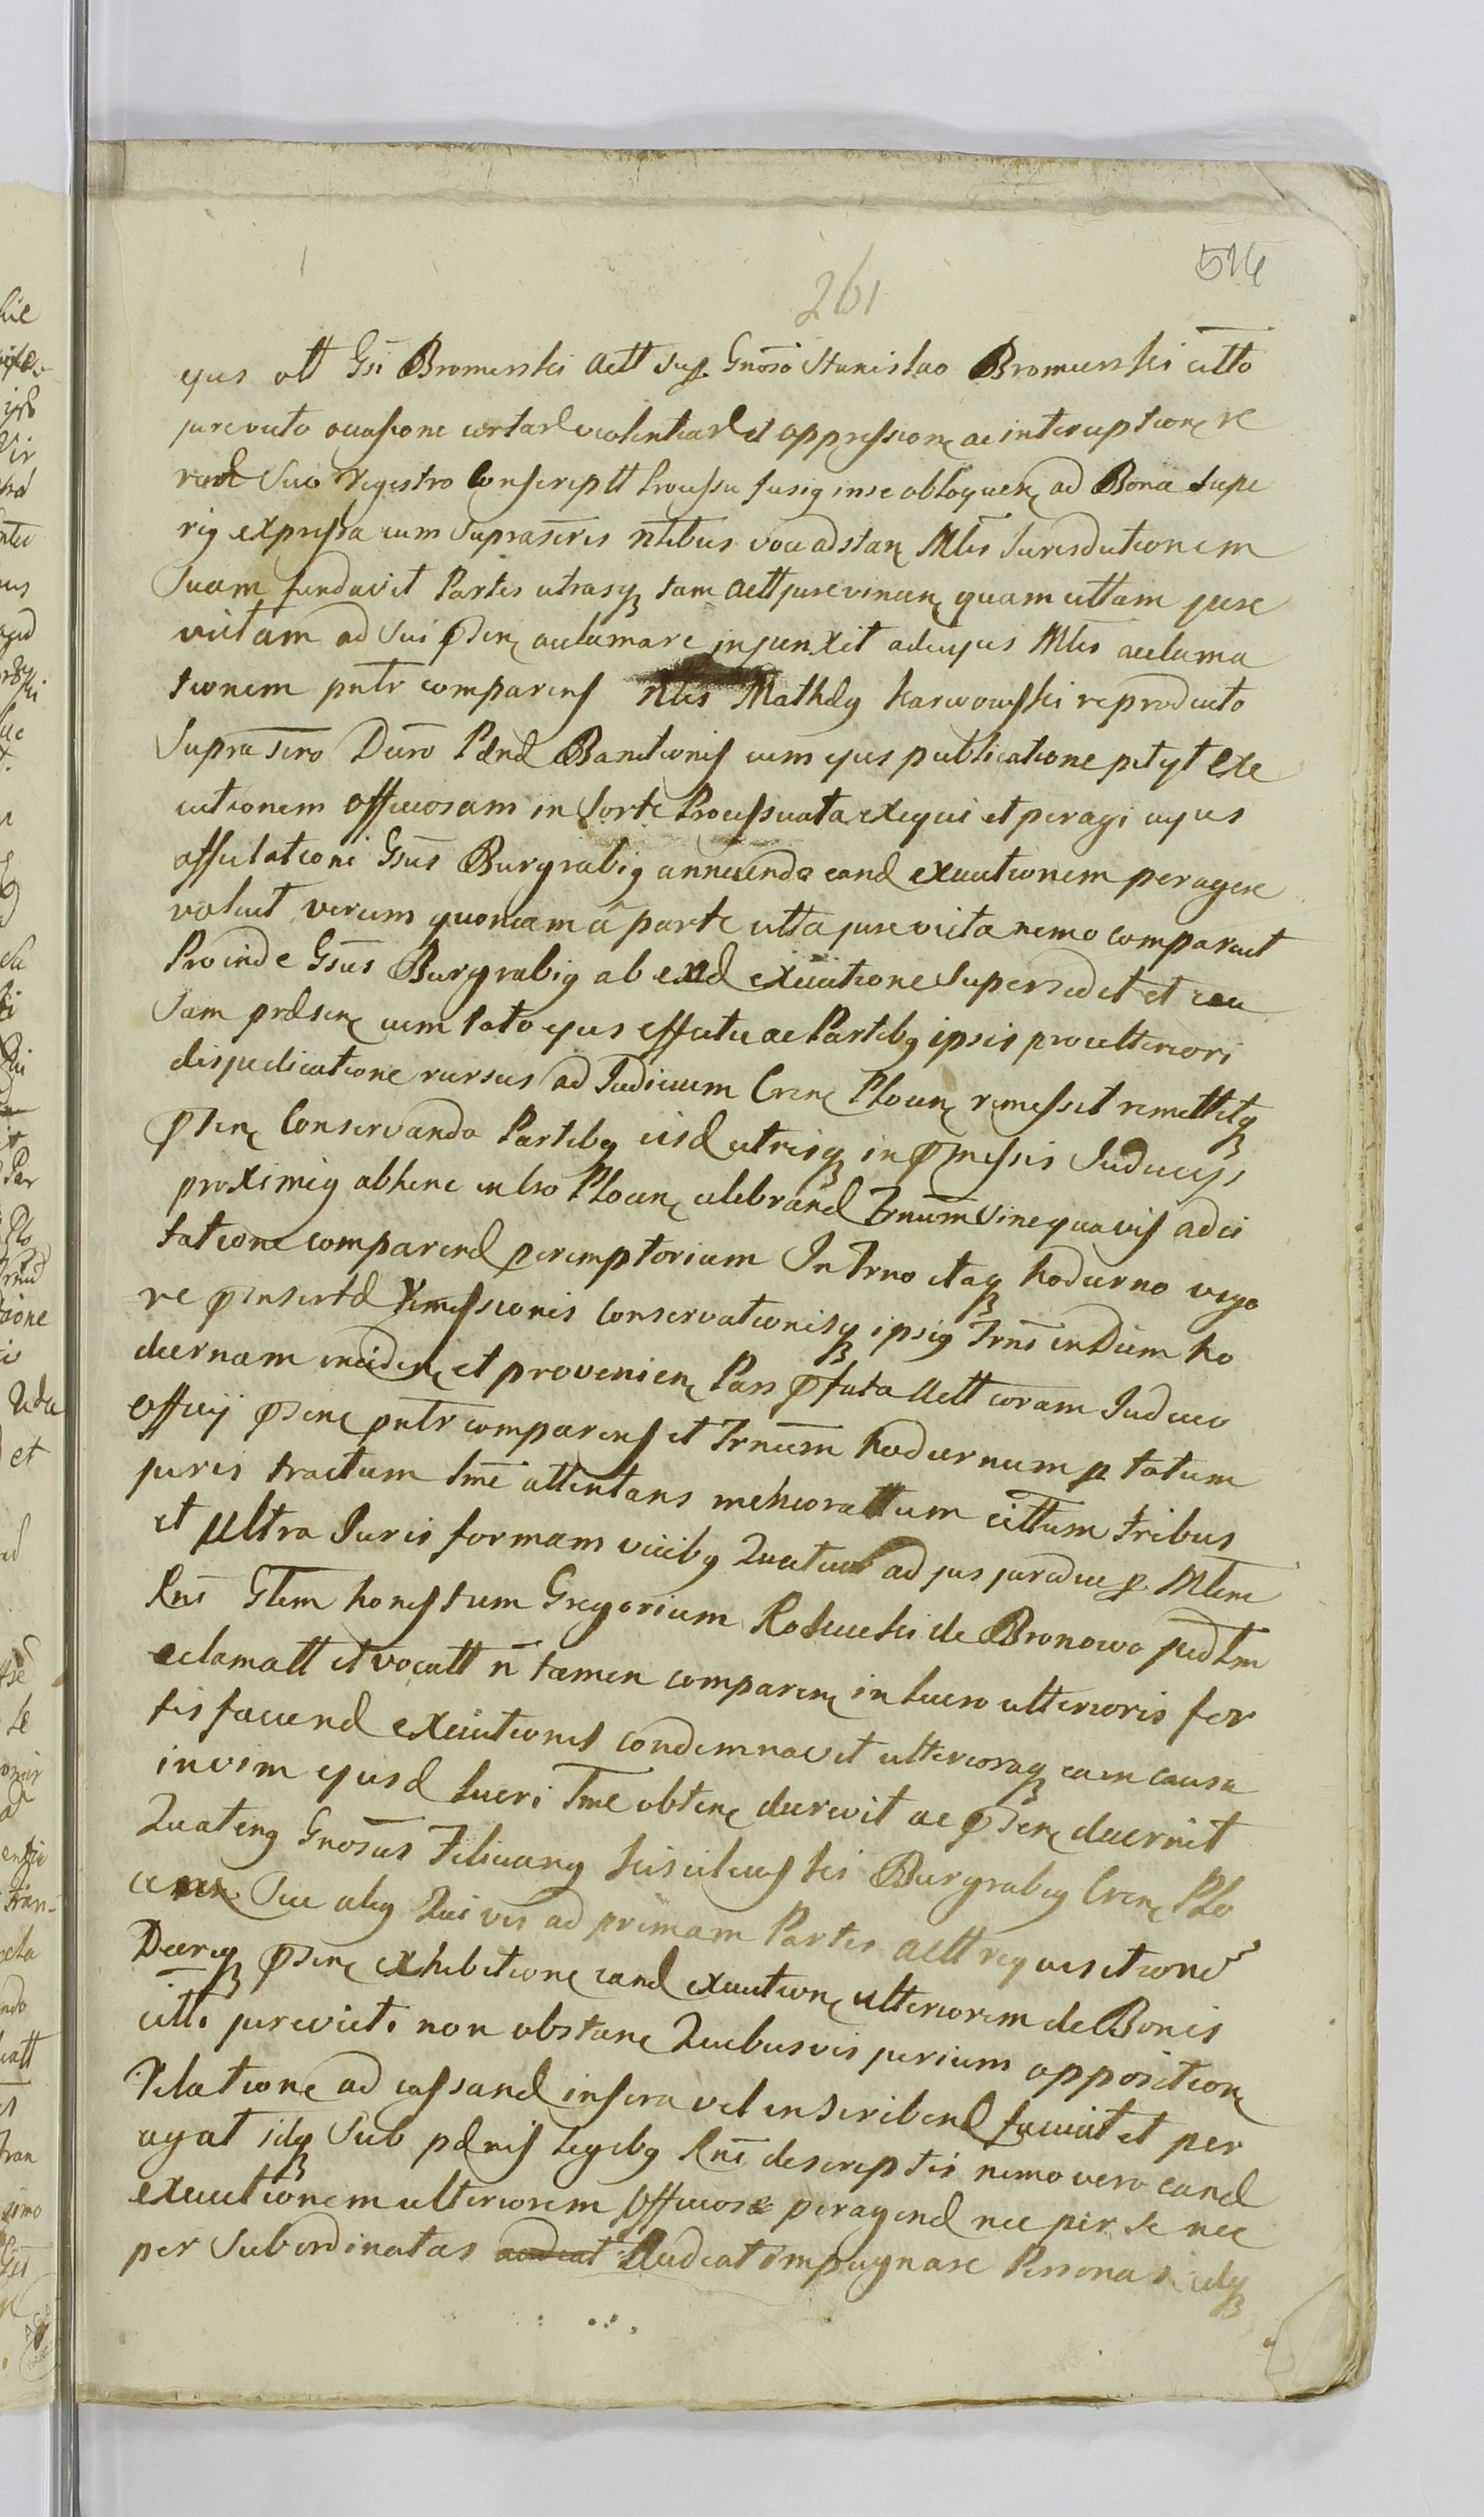 516
261
ejus ott Gsi Bromirski Actt sup Gnoso Stanislao Bromirski citto
jurevicto occasione certar violentiar et oppression ac interuption re
rum Suo regestro Conscriptt Processu fusig inse obloquen ad Bona supe
rig expressa cum suprascris ntibus voce adstan Mlis Jurisdictionem
Suam fundavit Partes utrasq tam Actt jure vincen quam cittam jure
victam ad sui psen acclamare injunxit ad cujus Mlis acclama
tionem pntr comparens Nlis Mathelg Karwowski reproducto
Suprascro Dcro Pdnd Banitionis cum ejus publicatione petyt exe
cutionem officiosam in Sorte Processuata exequi et peragi cujus
affectationi Gsus Burgrabig annuendo eand executionem peragere
voluit verum quoniam a parte citta jure victa nemo comparuit
Proinde Gsus Burgrabig ab ead executione Supersedit et cau
sam prdsen cum toto ejus effectu ac Partibg ipsis pro ulteriori
disjudicatione rursus ad Judicium Cren Plocen remissit remittitq
psen Conservando Partibg iisd utrisq in pmissis Judicijs
proximig abhinc in lro Plocen celebrand Trnum sine quavis adci
tatione comparend peremptorium In Trno itaq hodierno vigo
re pinsertd remissionis conservationisq ipsig Trni in Diem ho
diernam inciden et provenien Pars pfata Actt coram Judicio
Officij psen pntr comparens et Trnum hodiernum p totum
juris tractum tme attentans mehioratum cittum tribus
et ultra Juris formam vicibg Quatuor ad jus juradice p Mlem
Rni Gtem honestum Gregorium Rokicki de Bronowo judtm
aclamatt et vocatt n tamen comparen in lucro ulterioris for
tis faciend executionis condemnavit ulterioraq eam causa
in vim ejusd lucri tme obten decrevit ac psen decernit
Quateng Gnosus Feliciang Burgrabig Cren Plo
cen Seu alig Quivis ad primam Partis Actt requisitione
Decriq psen exhibitione eand execution ulteriorem de Bonis
citti jurevicti non obstan Quibusvis jurium opposition
Relatione ad cassand infera vel inscribend faciat et per
agat idq Sub pdnis legibg Rni descriptis nemo vero eand
executionem ulteriorem Officiose peragend nec per se nec
per Subordinatas audeat Audeat impugnare Personas idq